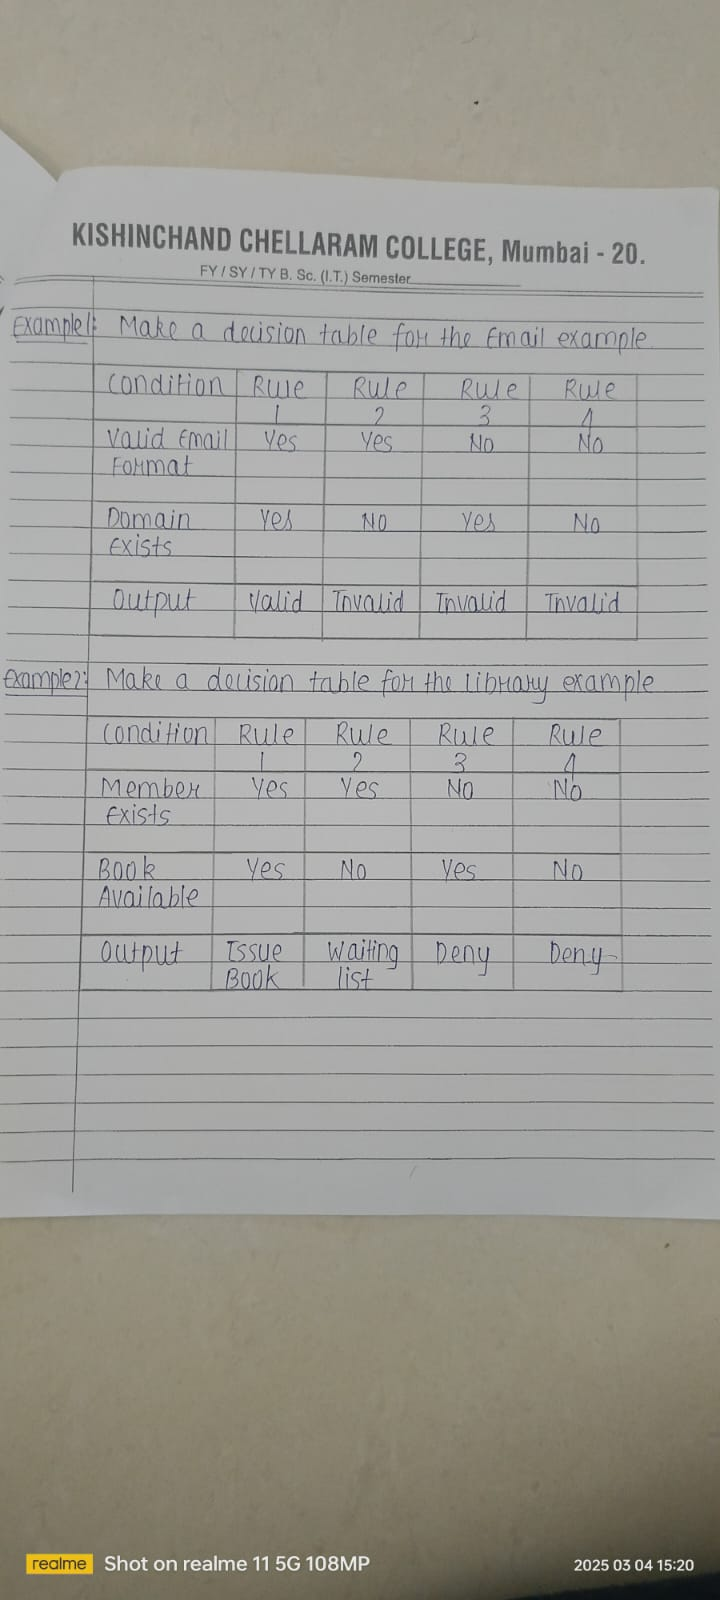 KISHINCHAND CHELLARAM COLLEGE, Mumbai - 20.
FY / SY / TY B. Sc. (I.T.) Semester
Example1: Make a decision table for the Email example
Condition Rule Rule Rule Rule
1 2 3 4
Valid Email Yes Yes No No
Format
Domain Yes No Yes No
Exists
Output Valid Invalid Invalid Invalid
Example2: Make a decision table for the library example
Condition Rule Rule Rule Rule
1 2 3 4
Member Yes Yes No No
Exists
Book Yes No Yes No
Available
Output Issue Waiting Deny Deny
Book list
realme Shot on realme 11 5G 108MP 2025 03 04 15:20